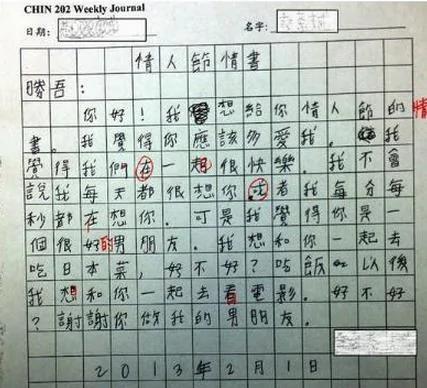 CHIN 202 Weekly Journal
日期:
名字:
情人節情書
勝吾:
你好!我想給你情人節的情
書。我覺得你應該多愛我。我
覺得我們在一起很快樂。我不會
說我每天都很想你.或者我每分每
秒都在想你.可是我覺得你是一
個很好的男朋友.我想和你一起去
吃日本菜,好不好?吃飯以後
我想和你一起去看電影.好不好
?謝謝你做我的男朋友.
2013年2月1日